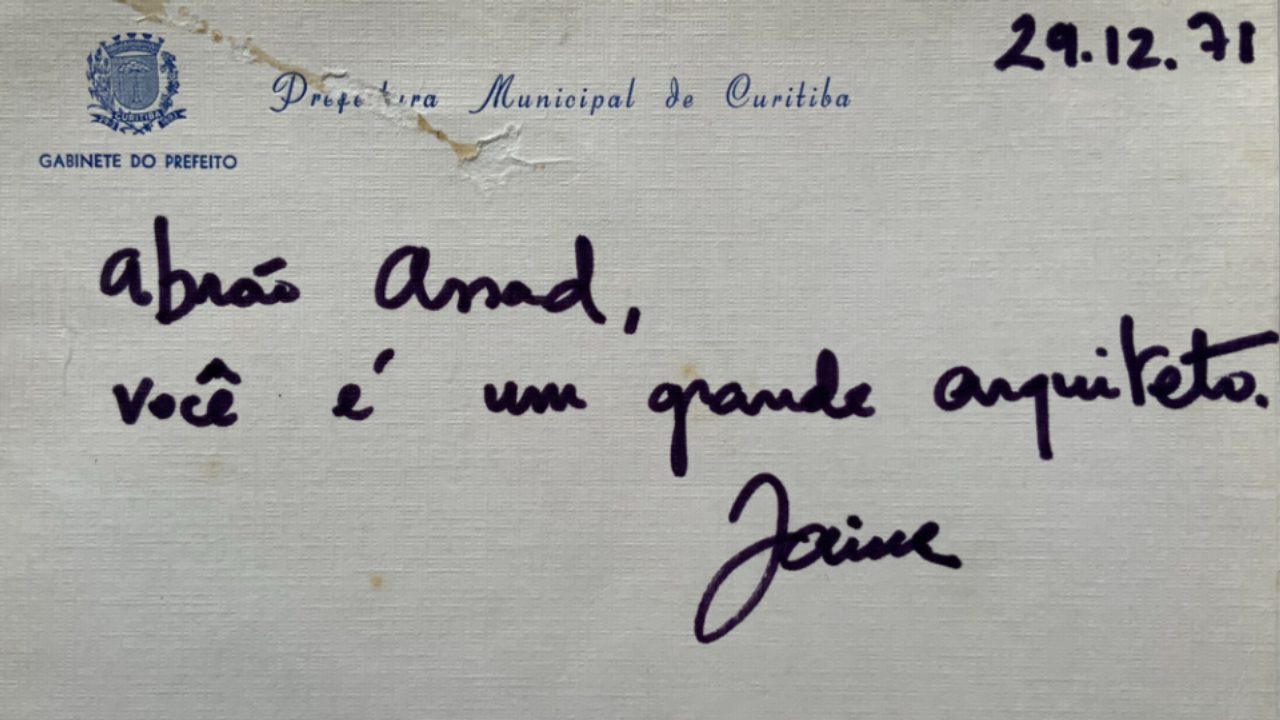 29.12.71
Prefeitura Municipal de Curitiba
CURITIBA
GABINETE DO PREFEITO
Abrão Assad,
você é um grande arquiteto.
Jaime